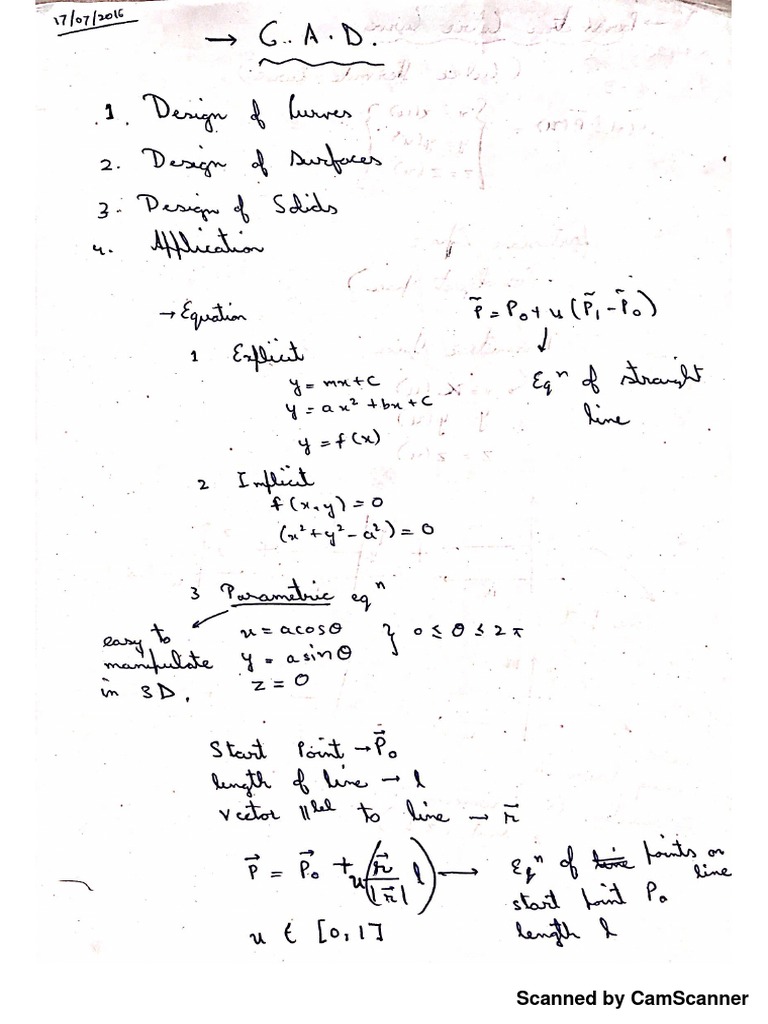 17/07/2016
→ G.A.D.
1. Design of Curves
2. Design of surfaces
3. Design of Solids
4. Application
→ Equation
P̃ = P₀ + u (P̃₁ - P̃₀)
↓
Eqⁿ of straight
line
1 Explicit
y = mx + C
y = ax² + bx + C
y = f(x)
2 Implicit
f(x, y) = 0
(x² + y² - a²) = 0
3 Parametric eqⁿ
easy to
manipulate
in 3D.
x = a cos θ
y = a sin θ
z = 0
} 0 ≤ θ ≤ 2π
Start Point → P⃗₀
length of line → l
vector ||lel to line → r⃗
P⃗ = P⃗₀ + u(r⃗/|r⃗| l) →
u ∈ [0, 1]
Eqⁿ of line points on
line
start point P₀
length l
Scanned by CamScanner